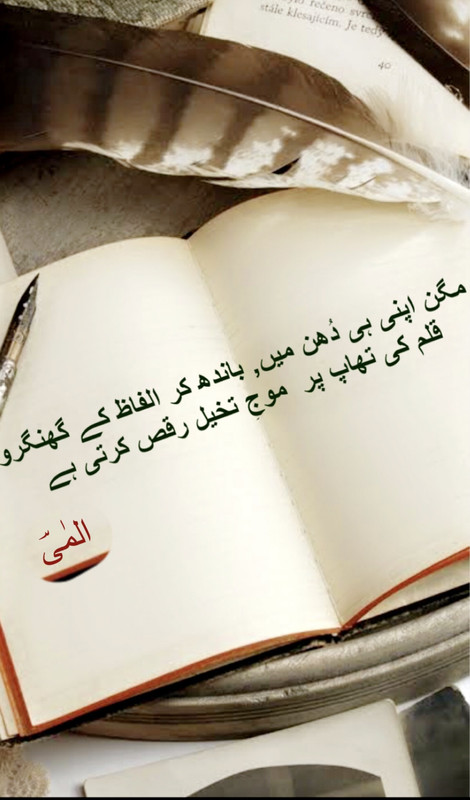 řečeno
stále klesajícím. Je tedy
40
مگن اپنی ہی دُھن میں, باندھ کر الفاظ کے گھنگرو
قلم کی تھاپ پر موجِ تخیل رقص کرتی ہے
المٰی